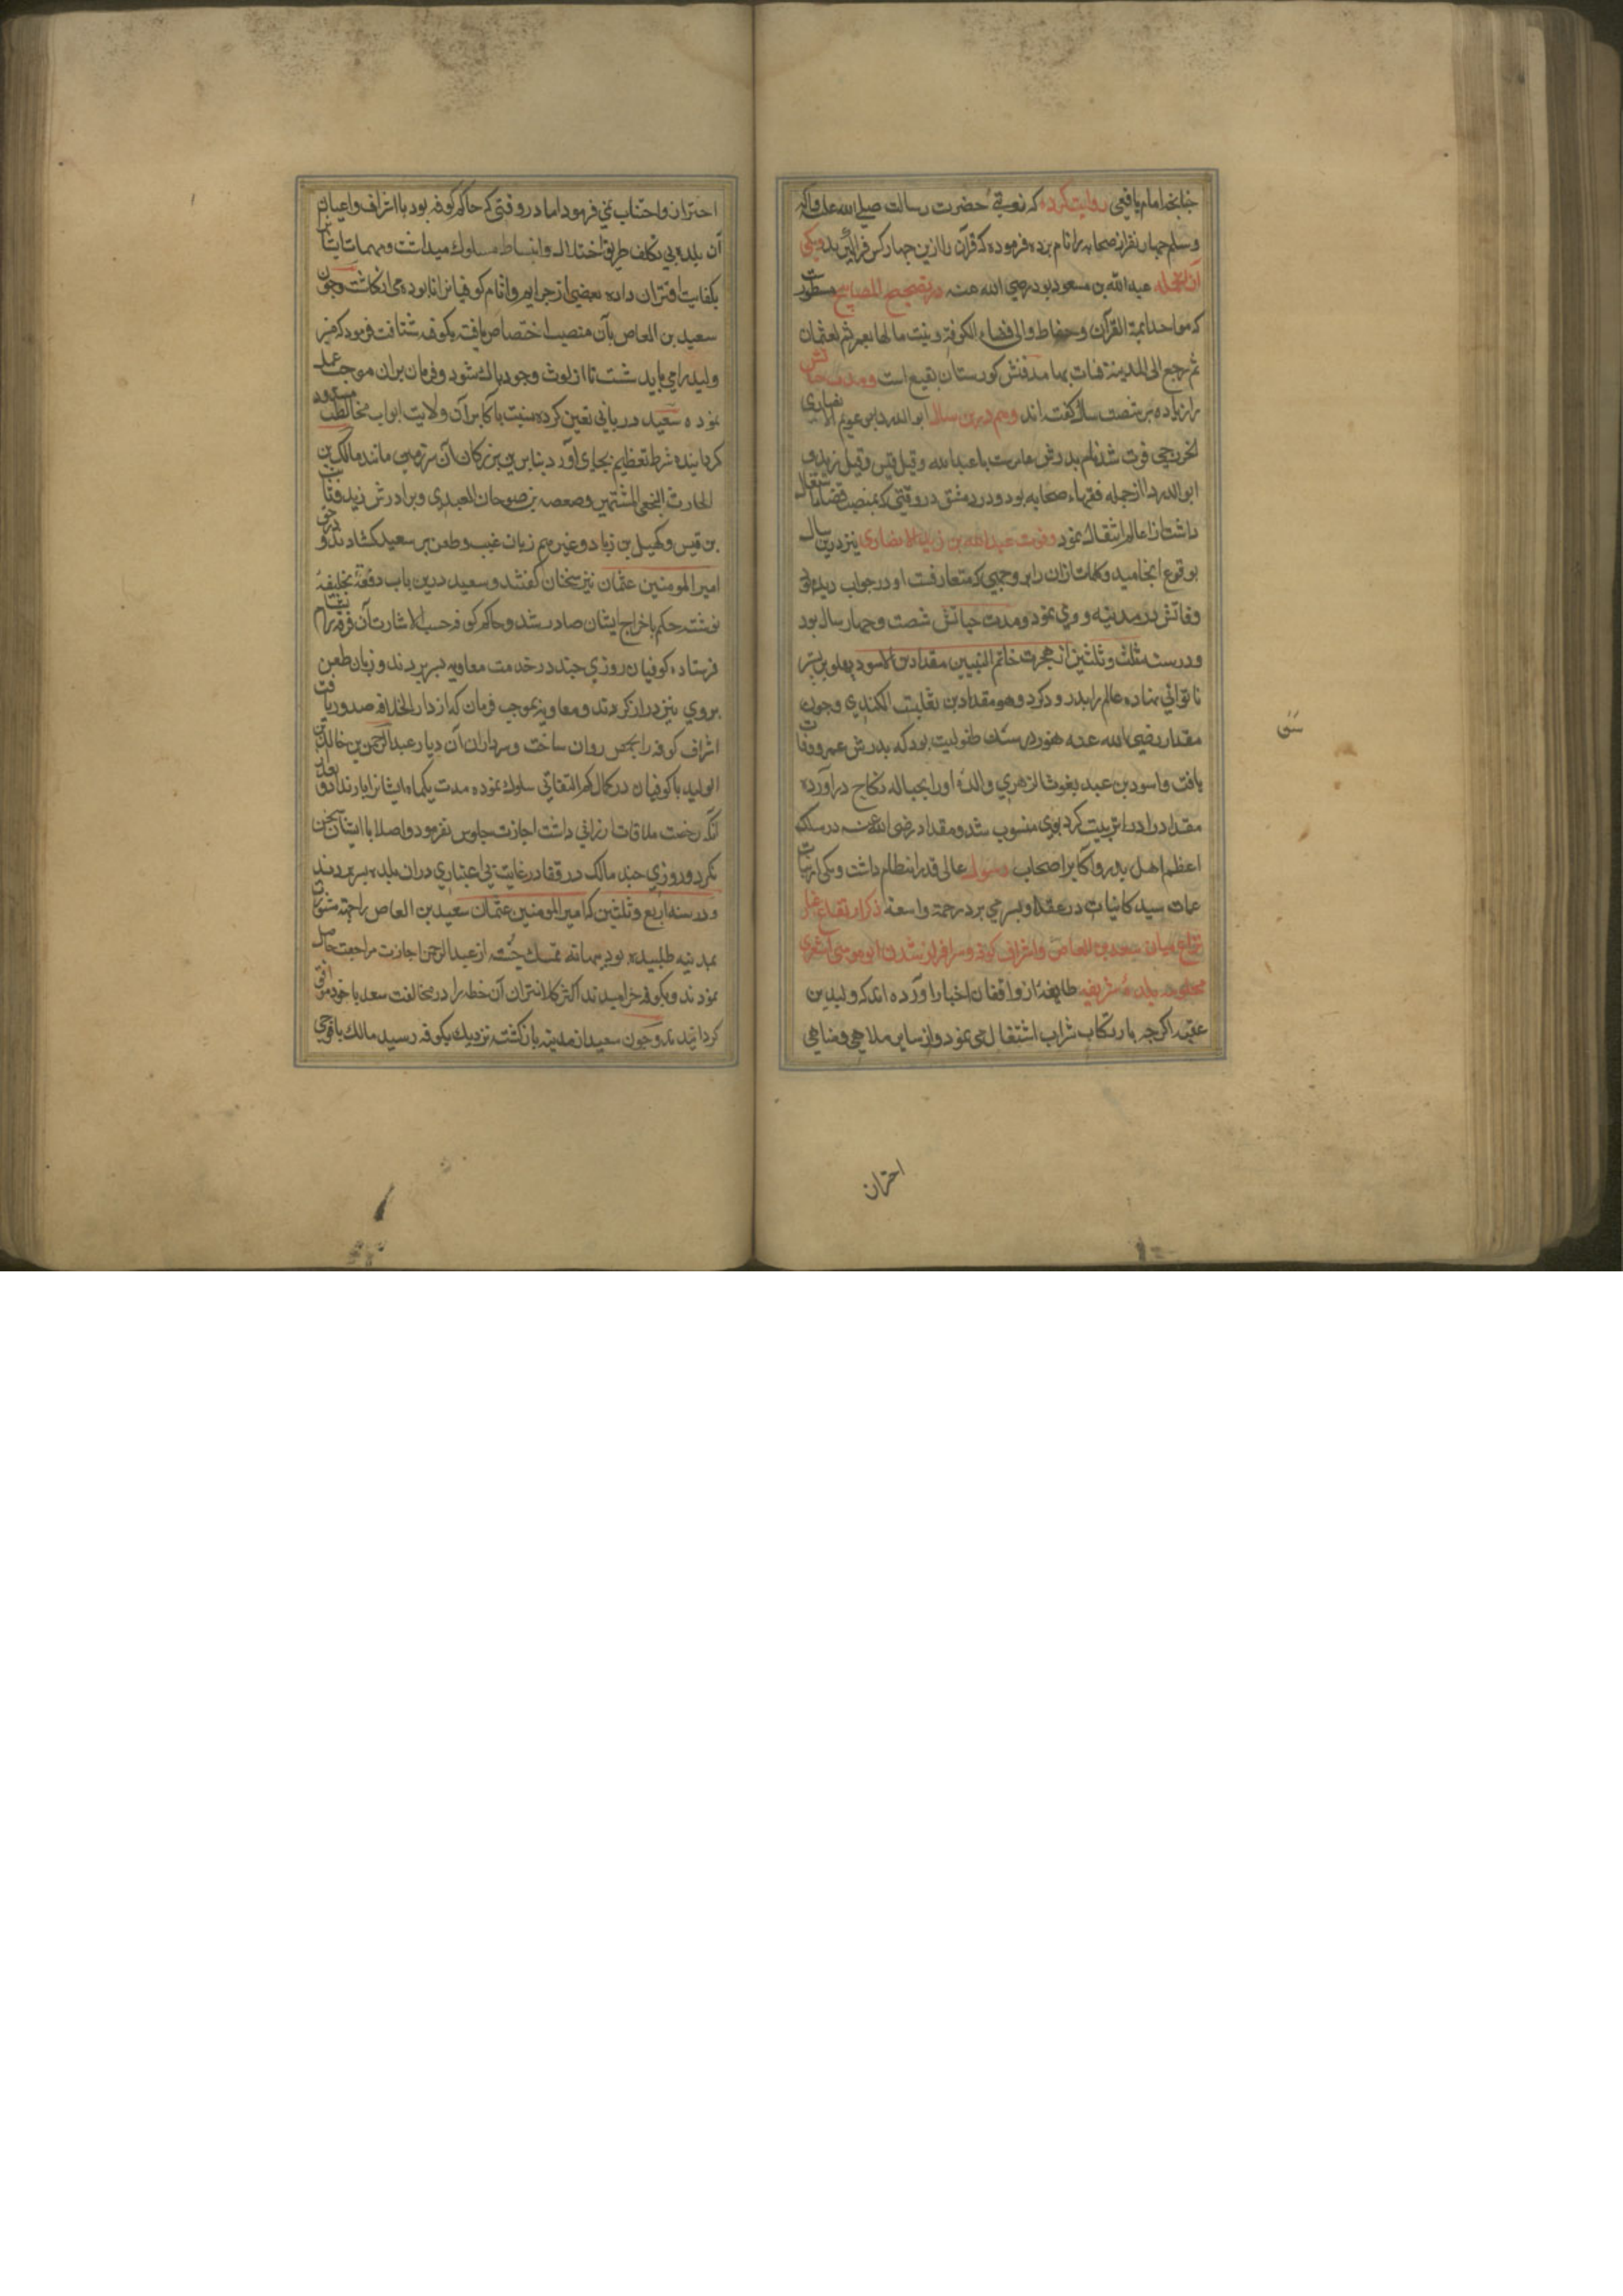 چنانچه امام یافعی روایت کرده که نوبتی حضرت رسالت صلی الله علیه وآله
وسلم چهار نفر از صحابه را نام برده فرموده که قرآن را ازین چهار کس فرا گیرید ویکی
ازانجمله عبدالله بن مسعود بود رضی الله عنه در تصحیح المصابیح مسطورست
که هو احد ایمة القرآن وحفاظ والی قضاء الکوفة وبیت مالها لعمر ثم لعثمان
ثم رجع الی المدینة فمات بها مدفنش کورستان بقیع است ومدت حیاتش
را زیاده بر شصت سال کفته اند وهم درین سال ابو الدرداء عویمر الانصاری
الخزرجی فوت شد نام پدرش عامرست یا عبدالله وقیل قیس وقیل زید و
ابو الدرداء از جمله فقهاء صحابه بود ودر دمشق در وقتی که بمنصب قضا اشتغال
داشت از عالم انتقال نمود وفوت عبدالله بن زید الانصاری نیز درین سال
بوقوع انجامید وکلمات اذان را بر وجهی که متعارفست او در جواب دیده بود
وفاتش در مدینه روی نمود ومدت حیاتش شصت وچهار سال بود
ودر سنه ثلث وثلثین از هجرت خاتم النبیین مقداد بن الاسود پهلو بر بستر
ناتوانی نهاده عالم را بدرود کرد وهو مقداد بن ثعلبت الکندی وچون
مقداد رضی الله عنه هنوز در سن طفولیت بود که پدرش عمرو وفات
یافت واسود بن عبد یغوث الزهری والدهٔ او را بحباله نکاح درآورده
مقداد را در تربیت کرد بوی منسوب شد ومقداد رضی الله عنه در سلک
اعظم اهل بدر واکابر اصحاب رسول عالی قدر انتظام داشت ویکی از بنات
عمات سید کاینات در عقد او بسر می برد رحمة واسعة ذکر ارتفاع غبار
نزاع میان سعید بن العاص واشراف کوفه وسرافراز شدن ابو موسی اشعری
بحکومت بلدهٔ شریفه طایفهٔ از واقفان اخبار آورده اند که ولید بن
عقبه اکرچه بارتکاب شراب اشتغال می نمود واز سایر ملاهی ومناهی
احتراز
احتراز واجتناب نمی فرمود اما در وقتی که حاکم کوفه بود با اشراف واعیان
آن بلده بی تکلف طریق اختلاط وانبساط مسلوک میداشت ومهمات ایشانرا
بکفایت اقتران داده بعضی از جرایم واثام کوفیانرا نابوده می انکاشت وچون
سعید بن العاص بآن منصب اختصاص یافته بکوفه شتافت فرمود که منبر
ولید را می باید شست تا از لوث وجود پاک شود وفرمان بران موجب عمل
نموده سعید دربانی تعین کرده نسبت باکابر آن ولایت ابواب مخالطت مسدود
کردانیده شرط تعظیم بجای آورد بنابرین بزرکان آن سرزمین مانند مالک بن
الحارث النخعی المشتهر وصعصعه بن صوحان العبدی وبرادرش زید وثابت
بن قیس وکمیل بن زیاد وغیرهم زبان غیبت وطعن بر سعید کشادند ودر حق
امیر المومنین عثمان نیز سخنان کفتند وسعید درین باب رقعهٔ بخلیفه
نوشته حکم باخراج ایشان صادر شد وحاکم کوفه حسب الاشارت آن فرقه را بشام
فرستاده کوفیان روزی چند در خدمت معاویه بسر بردند وزبان طعن
بروی نیز دراز کردند ومعاویه بموجب فرمان که از دار الخلافه صدور یافت
اشراف کوفه را بحمص روان ساخت وسرداران آن دیار عبدالرحمن بن خالد بن
الولید با کوفیان در کمال کم التفاتی سلوک نموده مدت یکماه ایشانرا بار نداد وبعد
آنکه رخصت ملاقات ارزانی داشت اجازت جلوس نفرمود واصلا با ایشان سخن
نکرد وروزی چند مالک ورفقا در غایت بی اعتباری دران بلده بسر بردند
ودر سنه اربع وثلثین که امیر المومنین عثمان سعید بن العاص را جهة مشورت
بمدینه طلبیده بود بهانه تمسک جسته از عبدالرحمن اجازت مراجعت حاصل
نمودند وبکوفه خرامیدند اکثر کلانتران آن خطه را در مخالفت سعد با خود موافق
کردانیدند وچون سعید از مدینه بازکشته نزدیک بکوفه رسید مالک با فوجی